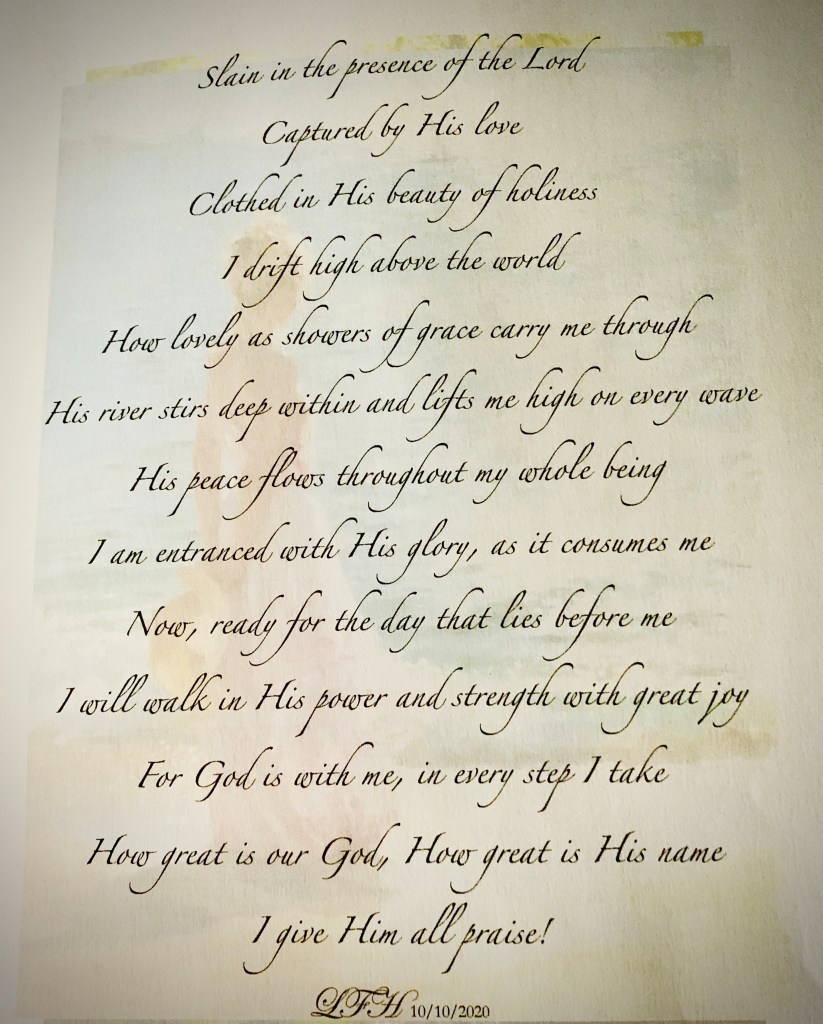 Slain in the presence of the Lord
Captured by His love
Clothed in His beauty of holiness
I drift high above the world
How lovely as showers of grace carry me through
His river stirs deep within and lifts me high on every wave
His peace flows throughout my whole being
I am entranced with His glory, as it consumes me
Now, ready for the day that lies before me
I will walk in His power and strength with great joy
For God is with me, in every step I take
How great is our God, How great is His name
I give Him all praise!
LFH 10/10/2020